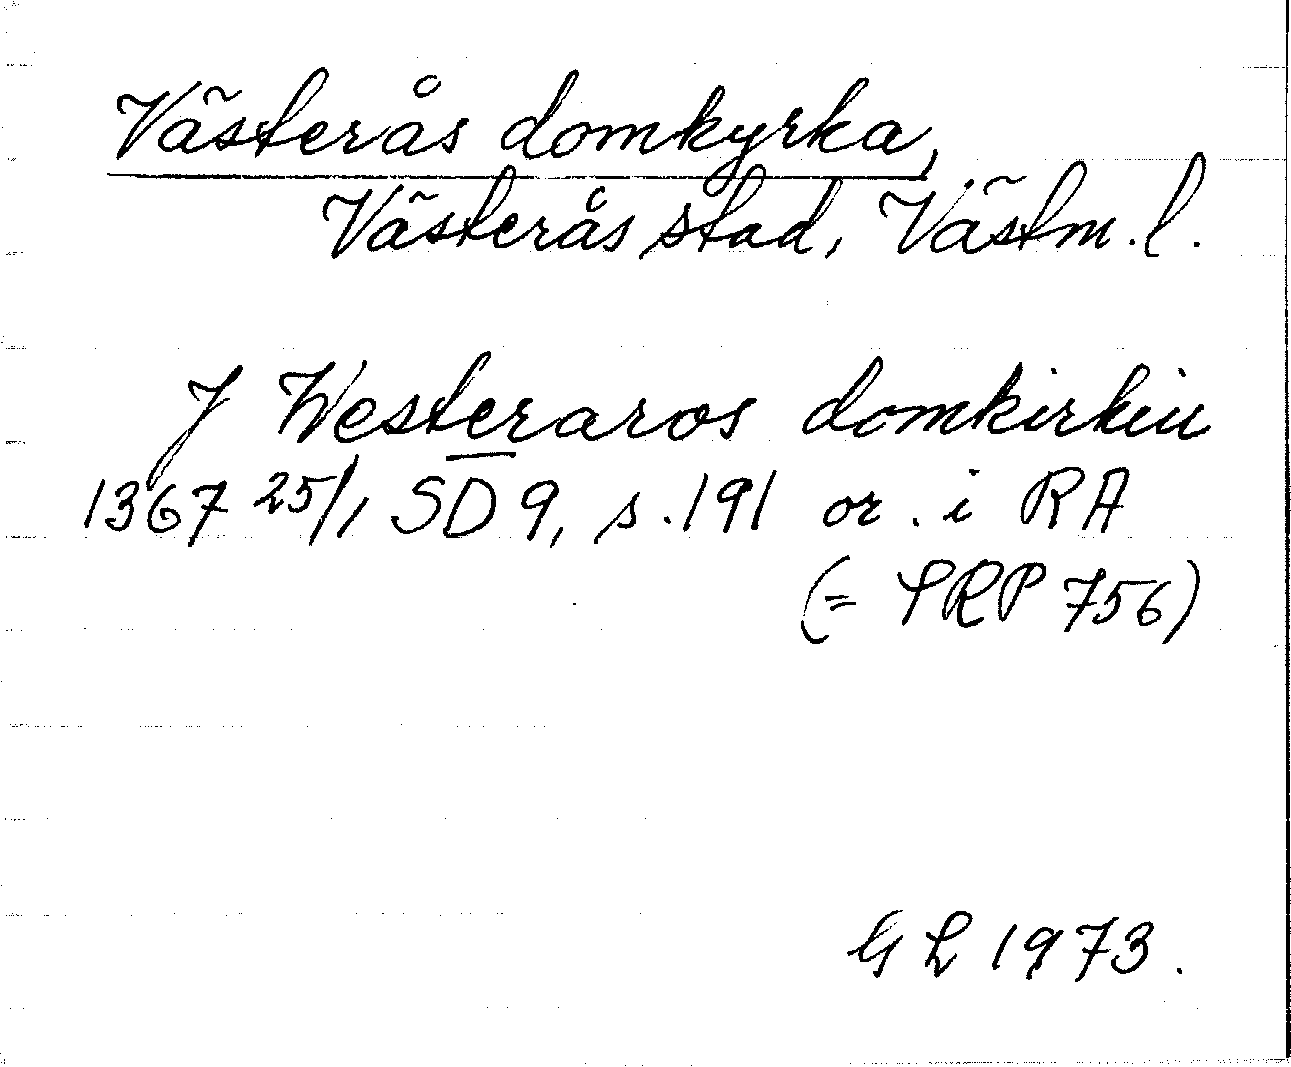 Västerås domkyrka,
Västerås stad, Västm. l.
J Westeraros domkirkiu
1367 25/1, SD 9, s. 191 or. i RA
(= SRP 756)
G L 1973.